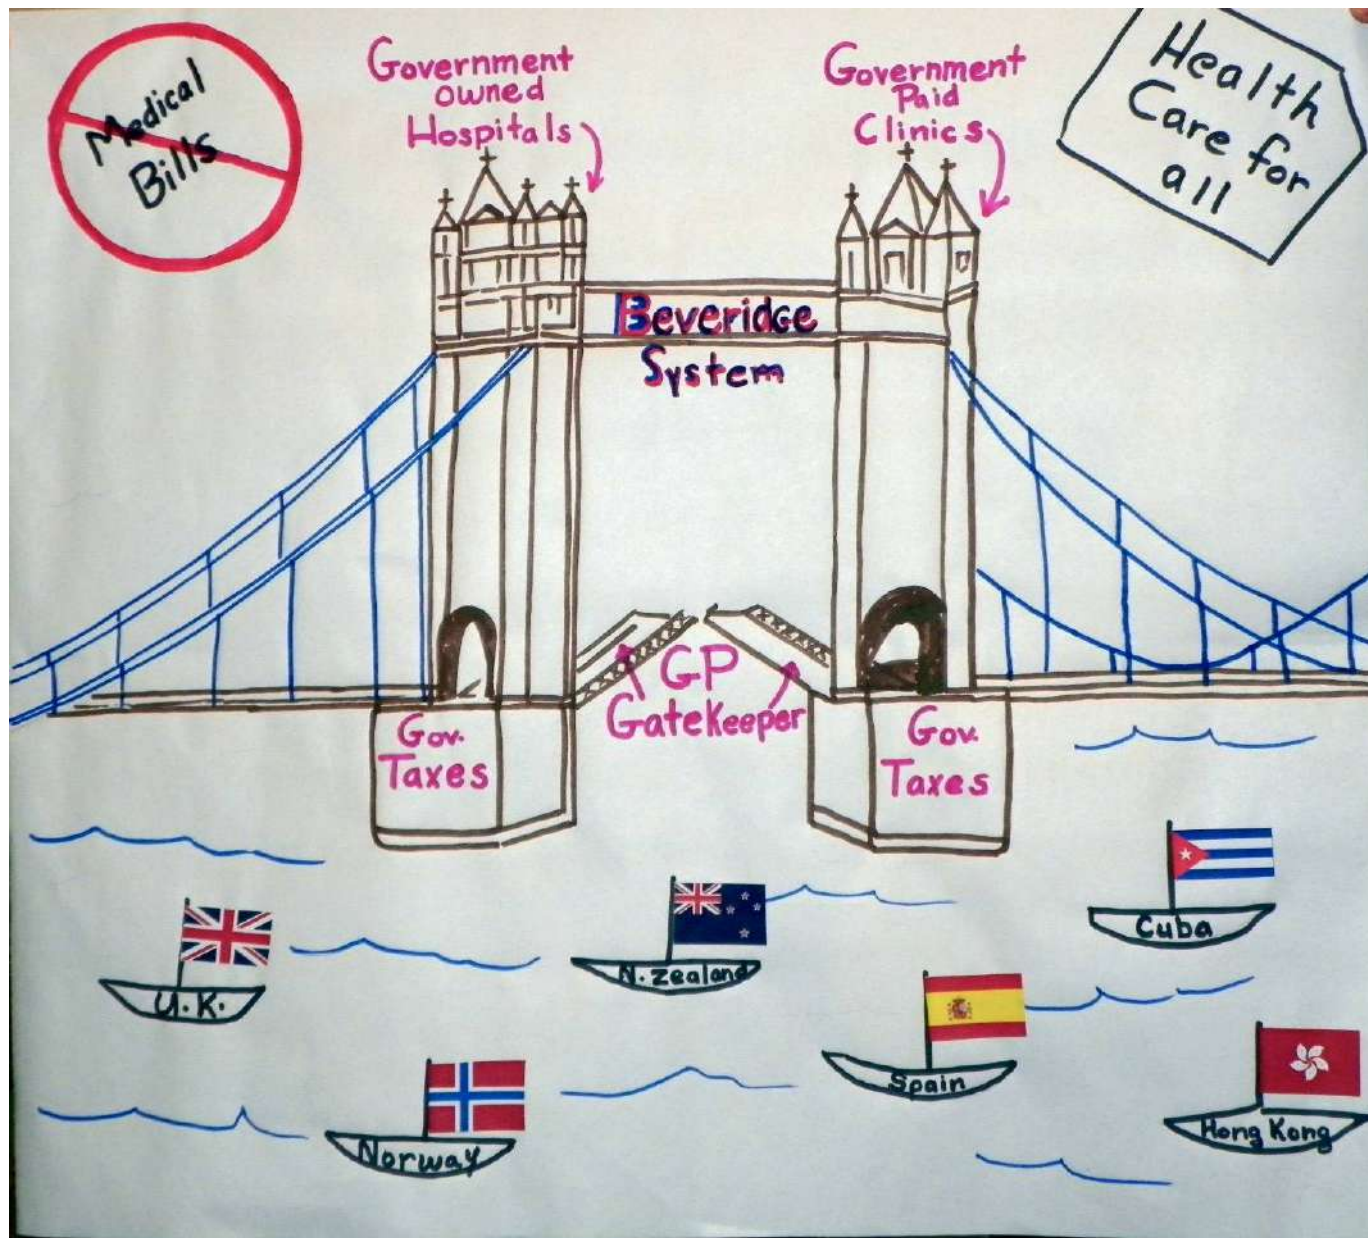 Medical
Bills
Government
owned
Hospitals
Government
Paid
Clinics
Health
Care for
all
Beveridge
System
GP
GateKeeper
Gov.
Taxes
Gov.
Taxes
U.K.
N. Zealand
Cuba
Norway
Spain
Hong Kong